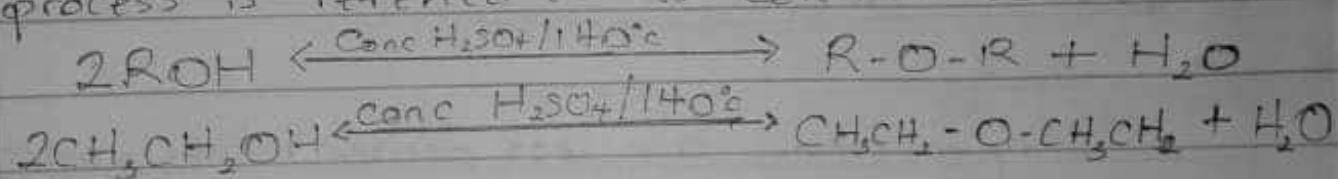 process is
2ROH <-- Conc H₂SO₄/140°c --> R-O-R + H₂O
2CH₃CH₂OH <-- conc H₂SO₄/140°c --> CH₃CH₂-O-CH₃CH₂ + H₂O